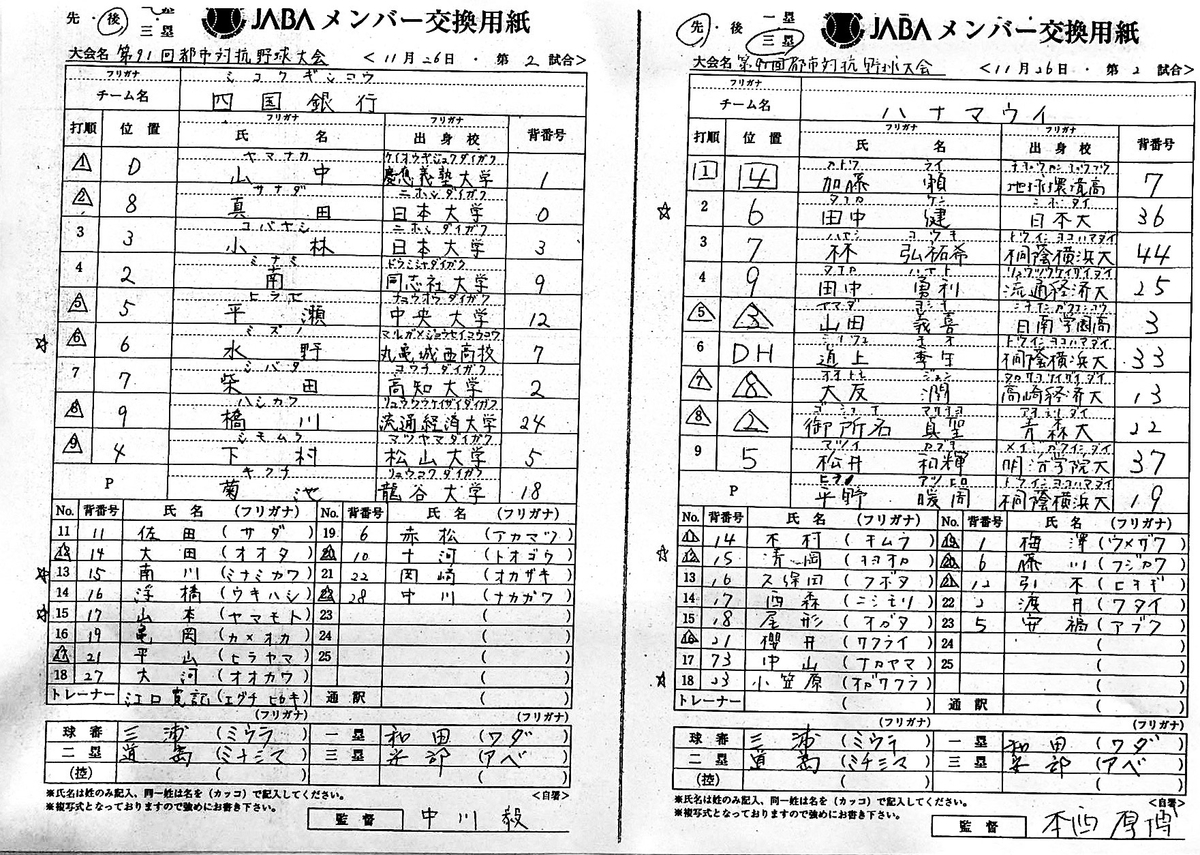 先・後 一塁 三塁 JABA メンバー交換用紙
大会名 第91回都市対抗野球大会 <11月26日・第2試合>
フリガナ シコクギンコウ
チーム名 四国銀行
打順 位置 フリガナ 氏名 フリガナ 出身校 背番号
ヤマナカ ケイオウギジュクダイガク
1 D 山中 慶應義塾大学 1
サナダ ニホンダイガク
2 8 真田 日本大学 0
コバヤシ ニホンダイガク
3 3 小林 日本大学 3
ミナミ ドウシシャダイガク
4 2 南 同志社大学 9
ヒラセ チュウオウダイガク
5 5 平瀬 中央大学 12
ミズノ マルガメジョウセイコウコウ
☆ 6 6 水野 丸亀城西高校 7
シバタ コウチダイガク
7 7 柴田 高知大学 2
ハシカワ リュウツウケイザイダイガク
8 9 橋川 流通経済大学 24
シモムラ マツヤマダイガク
9 4 下村 松山大学 5
キクチ リュウコクダイガク
P 菊池 龍谷大学 18
No. 背番号 氏名(フリガナ) No. 背番号 氏名(フリガナ)
11 11 佐田(サダ) 19 6 赤松(アカマツ)
12 14 大田(オオタ) 20 10 十河(トオゴウ)
☆ 13 15 南川(ミナミカワ) 21 22 岡崎(オカザキ)
14 16 浮橋(ウキハシ) 22 28 中川(ナカガワ)
☆ 15 17 山本(ヤマモト) 23 ( )
16 19 亀岡(カメオカ) 24 ( )
17 21 平山(ヒラヤマ) 25 ( )
18 27 大河(オオカワ) ( )
トレーナー 江口寛記(エグチ ヒロキ) 通訳 ( )
(フリガナ) (フリガナ)
球審 三浦(ミウラ) 一塁 和田(ワダ)
二塁 道島(ミチシマ) 三塁 安部(アベ)
(控) ( ) ( )
※氏名は姓のみ記入、同一姓は名を(カッコ)で記入してください。 <自署>
※複写式となっておりますので強めにお書き下さい。
監督 中川 毅
先・後 一塁 三塁 JABA メンバー交換用紙
大会名 第91回都市対抗野球大会 <11月26日・第2試合>
フリガナ
チーム名 ハナマウイ
打順 位置 フリガナ 氏名 フリガナ 出身校 背番号
カトウ ライ
1 4 加藤 頼 地球環境高 7
タナカ ケン ニホンダイ
☆ 2 6 田中 健 日本大 36
ハヤシ コウキ トウインヨコハマダイ
3 7 林 弘祐希 桐蔭横浜大 44
タナカ ハヤト リュウツウケイザイダイ
4 9 田中 勇利 流通経済大 25
ヤマダ ヨシキ ニチナンガクエンコウ
5 3 山田 義喜 日南学園高 3
トウインヨコハマダイ
6 DH 道上 桐蔭横浜大 33
オオトモ ジュン タカサキケイザイダイ
7 8 大友 潤 高崎経済大 13
ゴショナ マサキヨ アオモリダイ
8 2 御所名 真聖 青森大 22
マツイ カズキ メイジガクインダイ
9 5 松井 和輝 明治学院大 37
ヒラノ トウインヨコハマダイ
P 平野 暖周 桐蔭横浜大 19
No. 背番号 氏名(フリガナ) No. 背番号 氏名(フリガナ)
11 14 木村(キムラ) 19 1 梅澤(ウメザワ)
☆ 12 15 清岡(キヨオカ) 20 6 藤川(フジカワ)
13 16 久保田(クボタ) 21 12 引木(ヒキギ)
14 17 西森(ニシモリ) 22 2 渡井(ワタイ)
15 18 尾形(オガタ) 23 5 安福(アブク)
16 21 櫻井(サクライ) 24 ( )
17 73 中山(ナカヤマ) 25 ( )
☆ 18 23 小笠原(オガサワラ) ( )
トレーナー ( ) 通訳 ( )
(フリガナ) (フリガナ)
球審 三浦(ミウラ) 一塁 和田(ワダ)
二塁 道島(ミチシマ) 三塁 安部(アベ)
(控) ( ) ( )
※氏名は姓のみ記入、同一姓は名を(カッコ)で記入してください。 <自署>
※複写式となっておりますので強めにお書き下さい。
監督 本西厚博